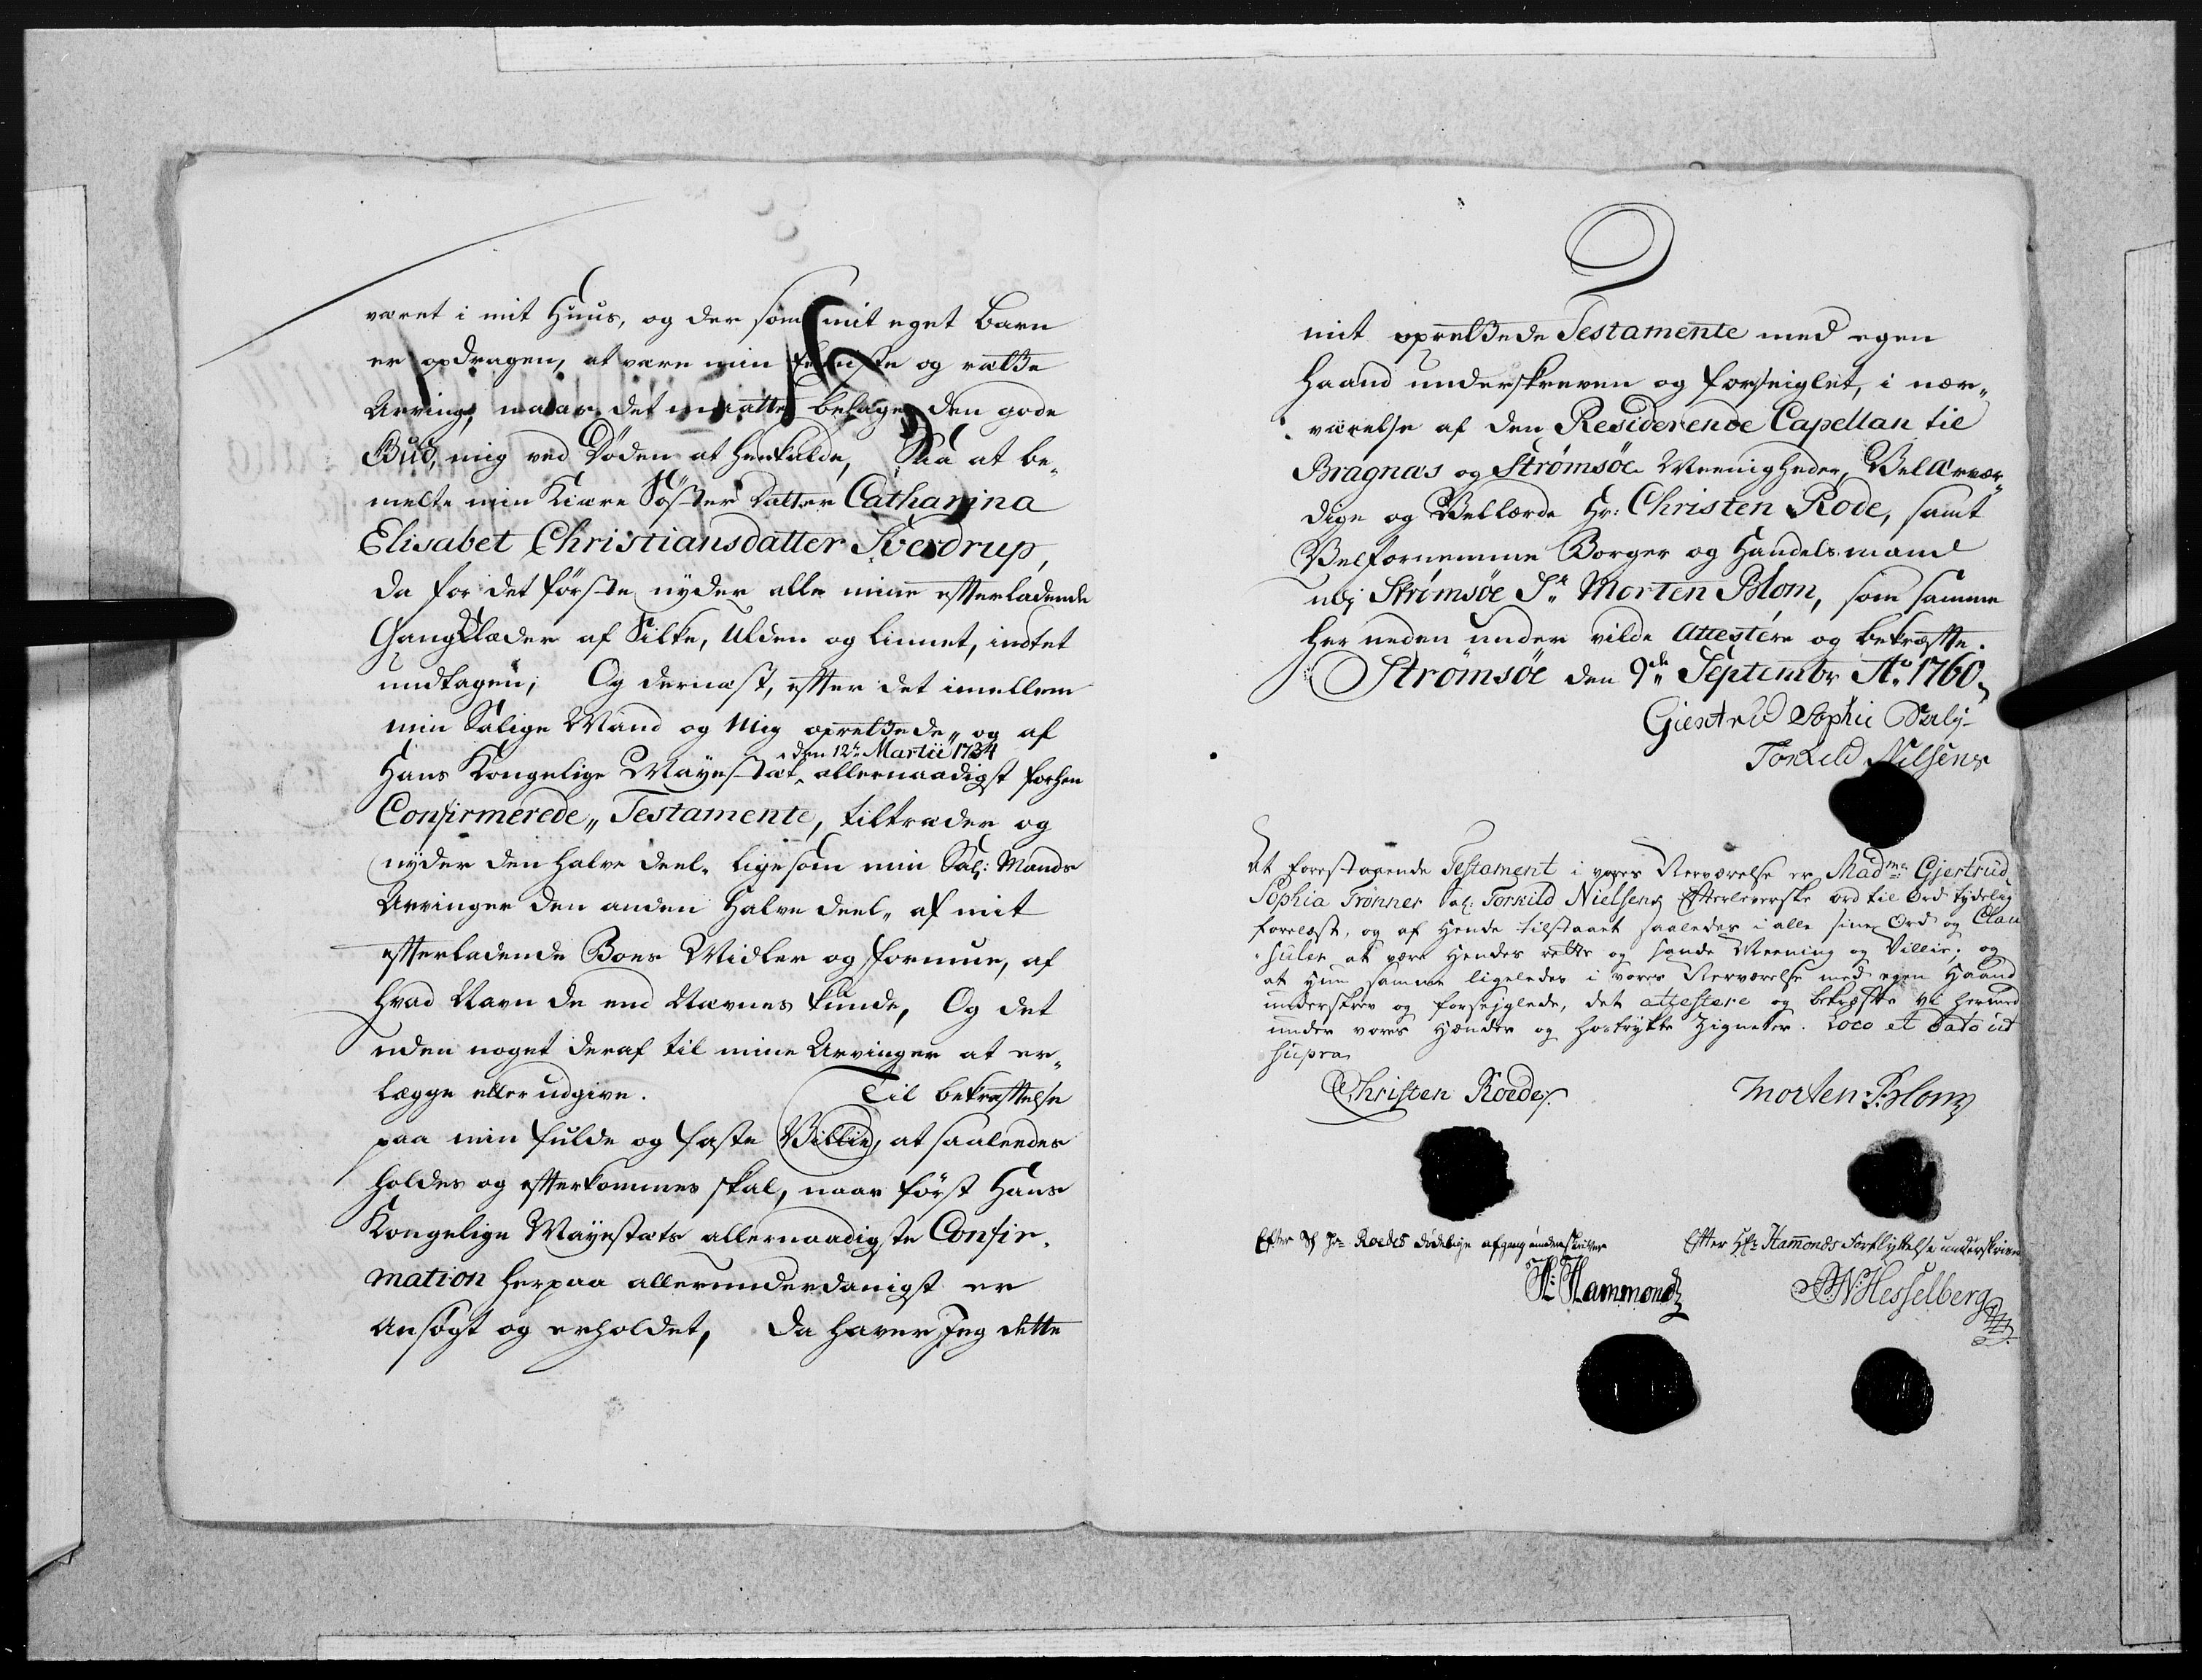 været i mit Huus, og der som mit eget Barn
er opdragen, at være min  og rætte
Arving, naar det maatte behage den gode
Gud, mig ved Døden at henkalde, Saa at be„
melte min Kiære Søster Datter Catharina
Elisabet Christiansdatter Sverdrup,
da for det første nyder alle mine efterladende
Gangklæder af Silke, Ulden og Linnet, indtet
undtagen; Og dernæst, efter det imellem
min Salige Mand og Mig oprettede„ og af
den 12te Martii 1734
Hans Kongelige Mayestæt allernaadigst forhen
Confirmerede„ Testamente, tiltræder og
nyder den halve deel„ ligesom min Sal: Mands
Arvinger den anden halve deel„ af mit
efterladende Boes Midler og formue, af
hvad Navn de end Nævnes kunde, Og det
uden noget deraf til mine Arvinger at er„
lægge eller udgive. Til bekræftelse
paa min fulde og faste Villie, at saaleedes
holdes og efterkommes skal, naar først Hans
Kongelige Mayestæts allernaadigste Confir„
mation herpaa allerunderdanigst er
Ansøgt og erholdet, Da haver Jeg dette
mit oprettede Testamente med egen
Haand underskreven og forseiglet, i nær„
værelse af den Residerende Capellan til
Bragnæs og Strømsøe Meenigheder, Velærvær„
dige og Vellærde Hr: Christen Rode, samt
Velfornemme Borger og Handelsmand
udj Strømsøe Sr Morten Blom, som samme
her neden under vilde Attestére og bekræfte.
Strømsøe den 9de Septembr Ao 1760
Giertrud Sophie Salig
Torkild Nilsens
At forestaaende Testament i vores Nærværelse er Madme Gjertrud
Sophia Trønner Sal: Torkild Nielsens Efterleverske ord til Ord tydelig
forelæst, og af hende tilstaaet saaledes i alle sine Ord og Clau
suler at være hendes rette og sande Meening og Villie; og
at hun samme ligeledes i vores Nærværelse med egen Haand
underskrev og forsejglede, det attestere og bekræfte vi hermed
under vores hænder og hostrykte Zigneter. Loco et dato ut
supra
Christen Roede
Morten Blom
Efter Hr Roedes dødelige afgang underskriver
H: Hammond
Efter Hr: Hammonds Forflyttelse underskriver
Hesselberg